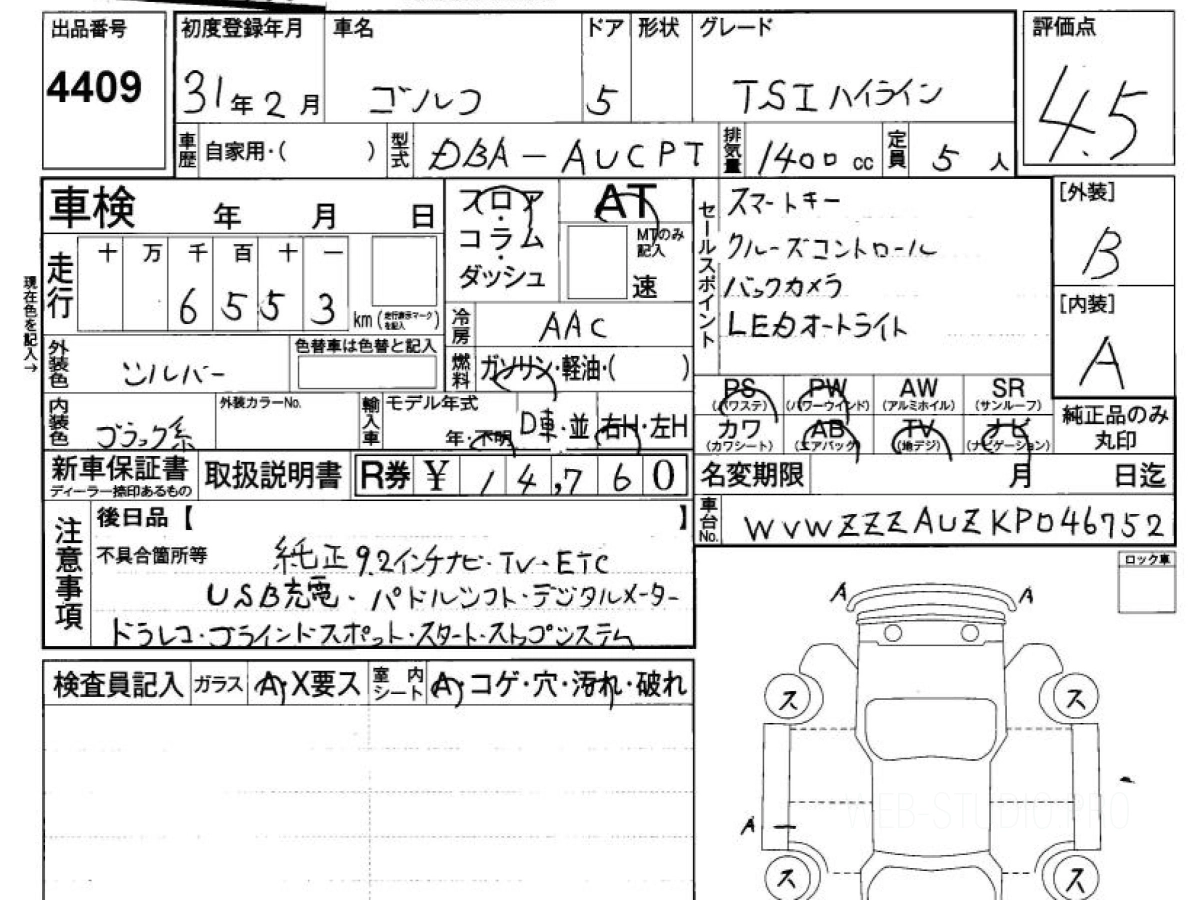 出品番号
4409
初度登録年月
31年2月
車名
ゴルフ
ドア
5
形状
グレード
TSIハイライン
評価点
4.5
車歴
自家用・( )
型式
DBA-AUCPT
排気量
1400cc
定員
5人
車検 年 月 日
フロア・コラム・ダッシュ
AT
MTのみ記入
速
セールスポイント
スマートキー
クルーズコントロール
バックカメラ
LEDオートライト
[外装]
B
[内装]
A
現在色を記入→
走行
十 万 千 百 十 一
6 5 5 3
km (走行表示マークを記入)
冷房
AAC
外装色
シルバー
色替車は色替と記入
燃料
ガソリン・軽油・( )
PS (パワステ)
PW (パワーウインド)
AW (アルミホイル)
SR (サンルーフ)
カワ (カワシート)
AB (エアバッグ)
TV (地デジ)
ナビ (ナビゲーション)
純正品のみ丸印
内装色
ブラック系
外装カラーNo.
輸入車
モデル年式
年・不明
D車・並
右H・左H
新車保証書
ディーラー捺印あるもの
取扱説明書
R券 ¥ 14,760
名変期限 月 日迄
車台No.
WVWZZZAUZKP046752
注意事項
後日品【 】
不具合箇所等
純正9.2インチナビ・TV・ETC
USB充電・パドルシフト・デジタルメーター
ドラレコ・ブラインドスポット・スタート・ストップシステム
ロック車
検査員記入
ガラス
A・X要ス
室内シート
A・コゲ・穴・汚れ・破れ
A A
ス ス
A
ス ス
WEB-STUDIO.PRO